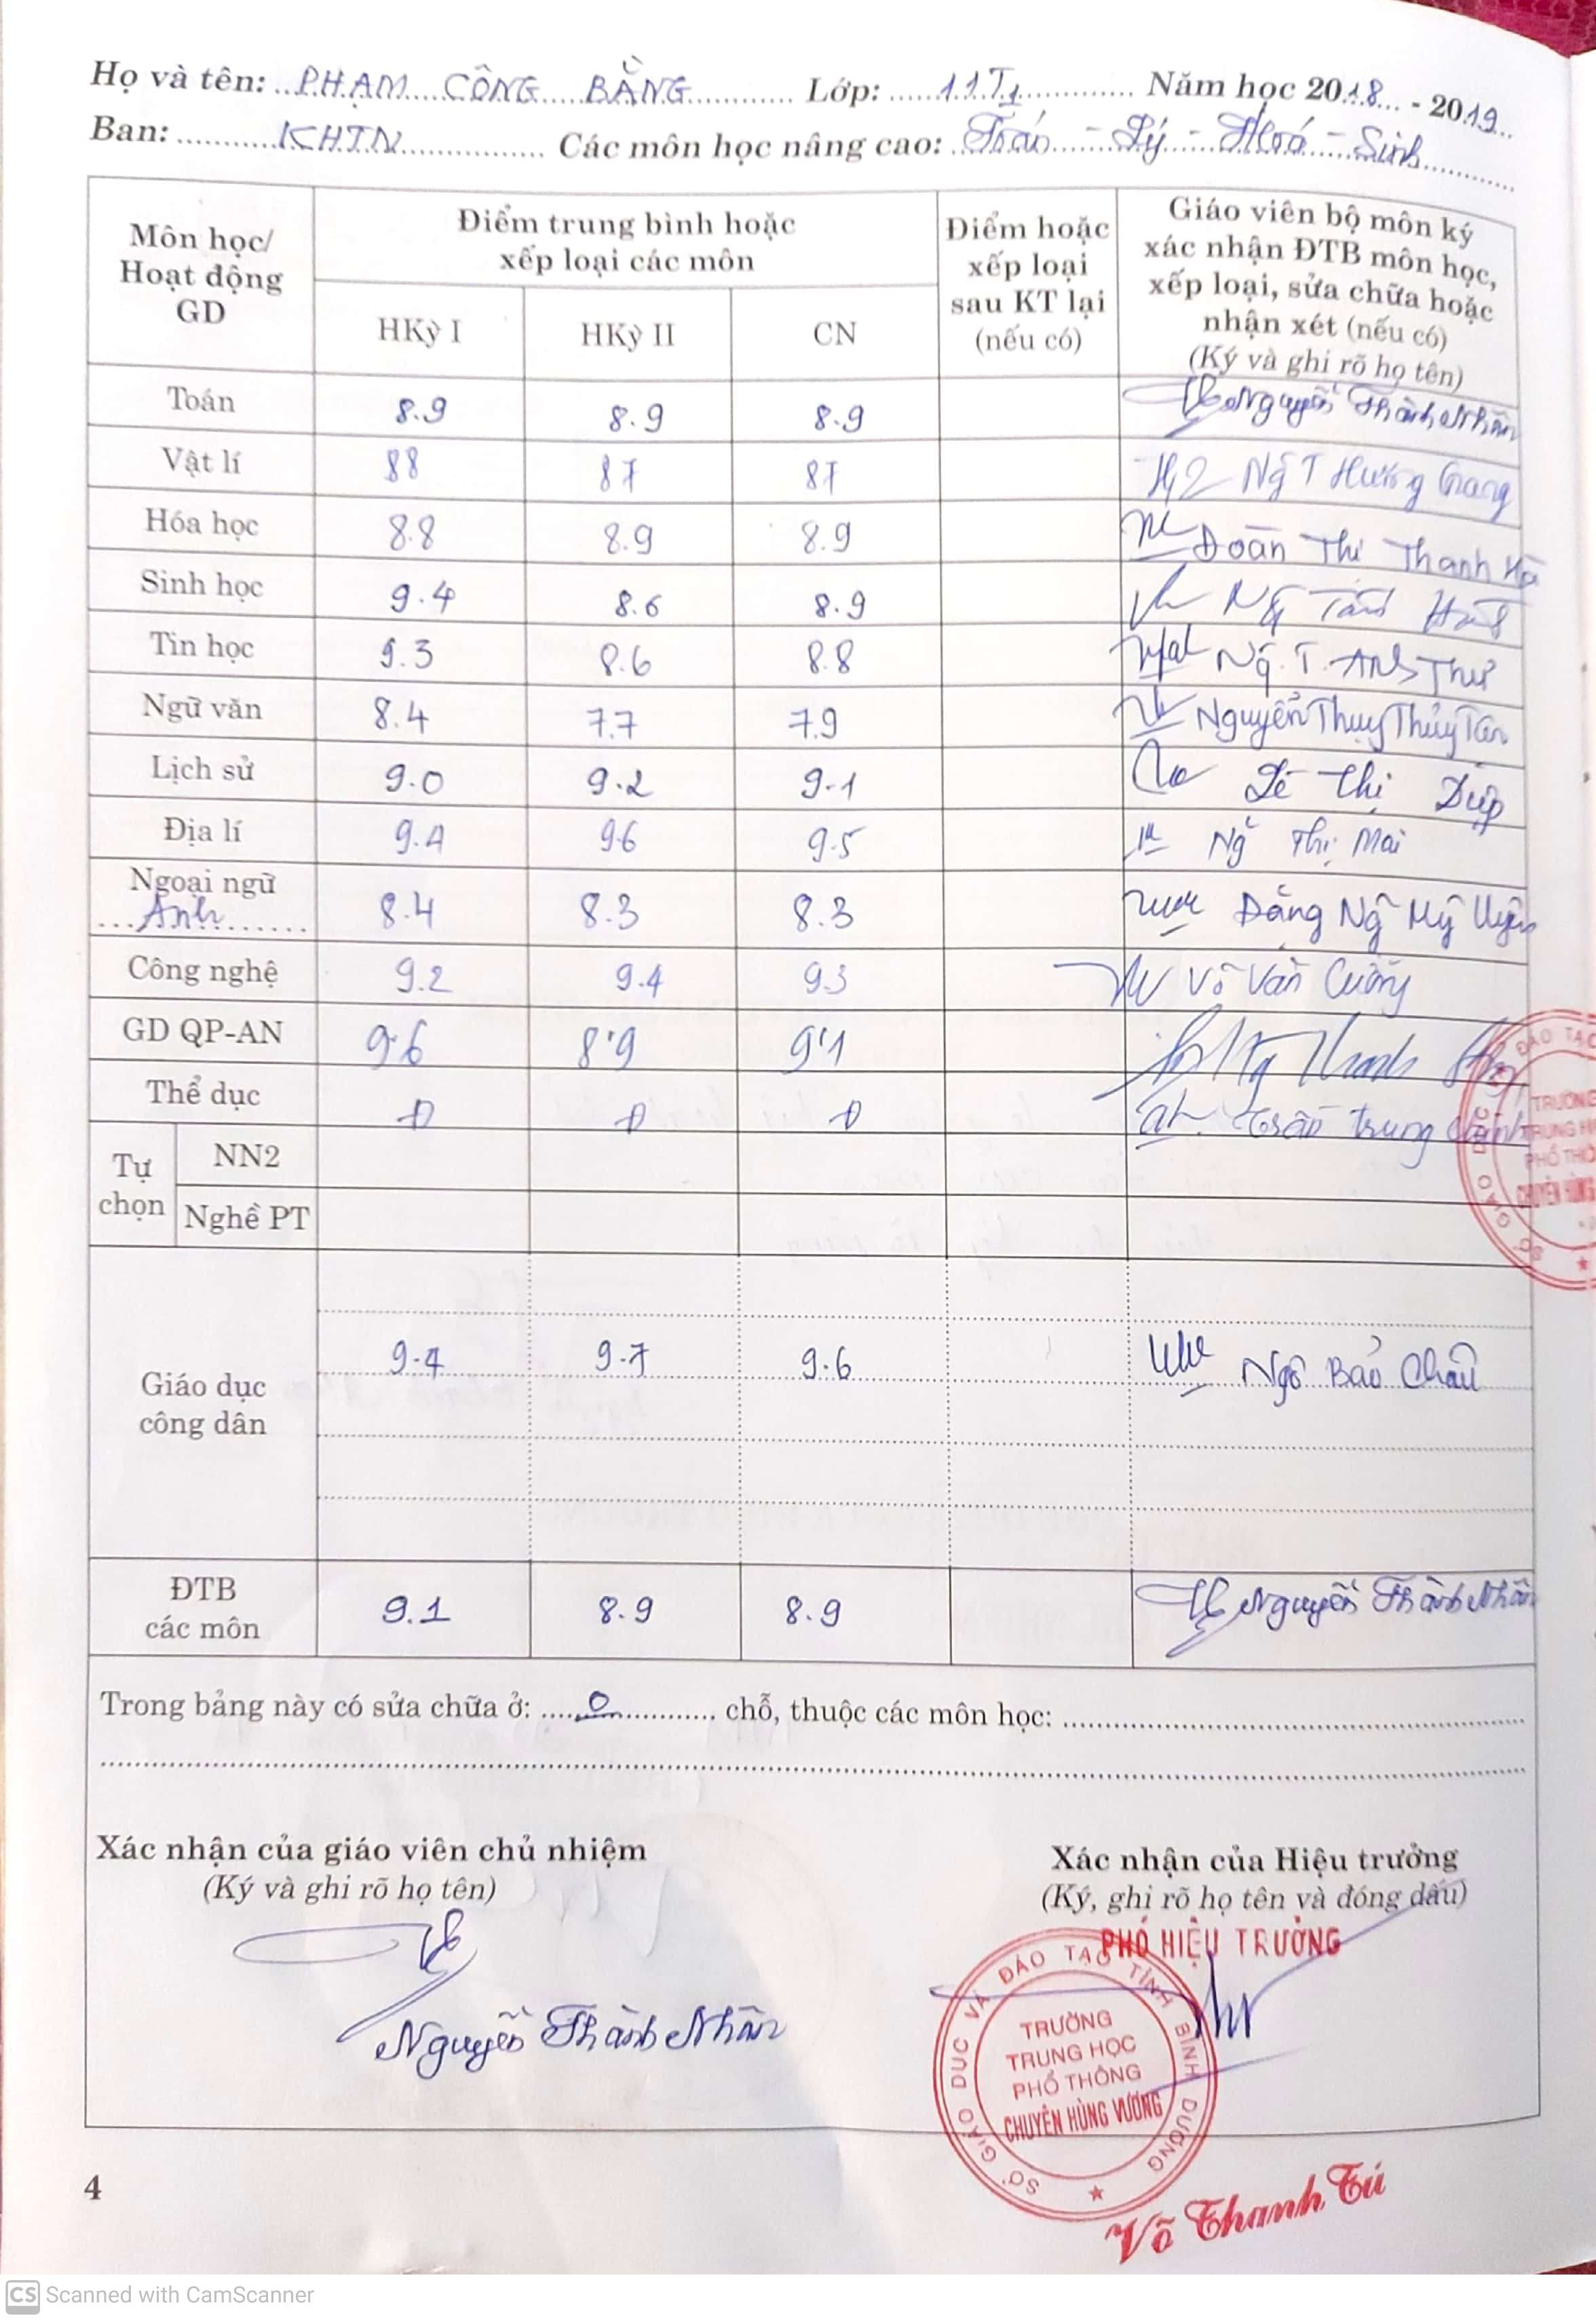 Họ và tên: PHẠM CÔNG BẰNG Lớp: 11T1 Năm học 2018 - 2019
Ban: KHTN Các môn học nâng cao: Toán - Lý - Hoá - Sinh
Môn học/ Hoạt động GD
Điểm trung bình hoặc xếp loại các môn
HKỳ I HKỳ II CN
Điểm hoặc xếp loại sau KT lại (nếu có)
Giáo viên bộ môn ký xác nhận ĐTB môn học, xếp loại, sửa chữa hoặc nhận xét (nếu có) (Ký và ghi rõ họ tên)
Toán 8.9 8.9 8.9 Nguyễn Thành Nhân
Vật lí 88 87 87 Ng T Hương Giang
Hóa học 8.8 8.9 8.9 Đoàn Thi Thanh Hà
Sinh học 9.4 8.6 8.9
Tin học 9.3 8.6 8.8 Ng. T. Anh Thư
Ngữ văn 8.4 7.7 7.9 Nguyễn Thụy Thủy Tân
Lịch sử 9.0 9.2 9.1 Lê Thị Diệp
Địa lí 9.4 9.6 9.5 Ng Thị Mai
Ngoại ngữ
Anh 8.4 8.3 8.3 Đặng Ng Mỹ Uyên
Công nghệ 9.2 9.4 9.3 Võ Văn Cường
GD QP-AN 9.6 8.9 9.1 Ng Thanh
Thể dục Đ Đ Đ Trần Trung
Tự chọn
NN2
Nghề PT
Giáo dục công dân 9.4 9.7 9.6 Ngô Bảo Châu
ĐTB các môn 9.1 8.9 8.9 Nguyễn Thành Nhân
Trong bảng này có sửa chữa ở: 0 chỗ, thuộc các môn học:
Xác nhận của giáo viên chủ nhiệm
(Ký và ghi rõ họ tên)
Nguyễn Thành Nhân
Xác nhận của Hiệu trưởng
(Ký, ghi rõ họ tên và đóng dấu)
PHÓ HIỆU TRƯỞNG
SỞ GIÁO DỤC VÀ ĐÀO TẠO TỈNH BÌNH DƯƠNG
TRƯỜNG
TRUNG HỌC
PHỔ THÔNG
CHUYÊN HÙNG VƯƠNG
Võ Thanh Tú
4
CS Scanned with CamScanner